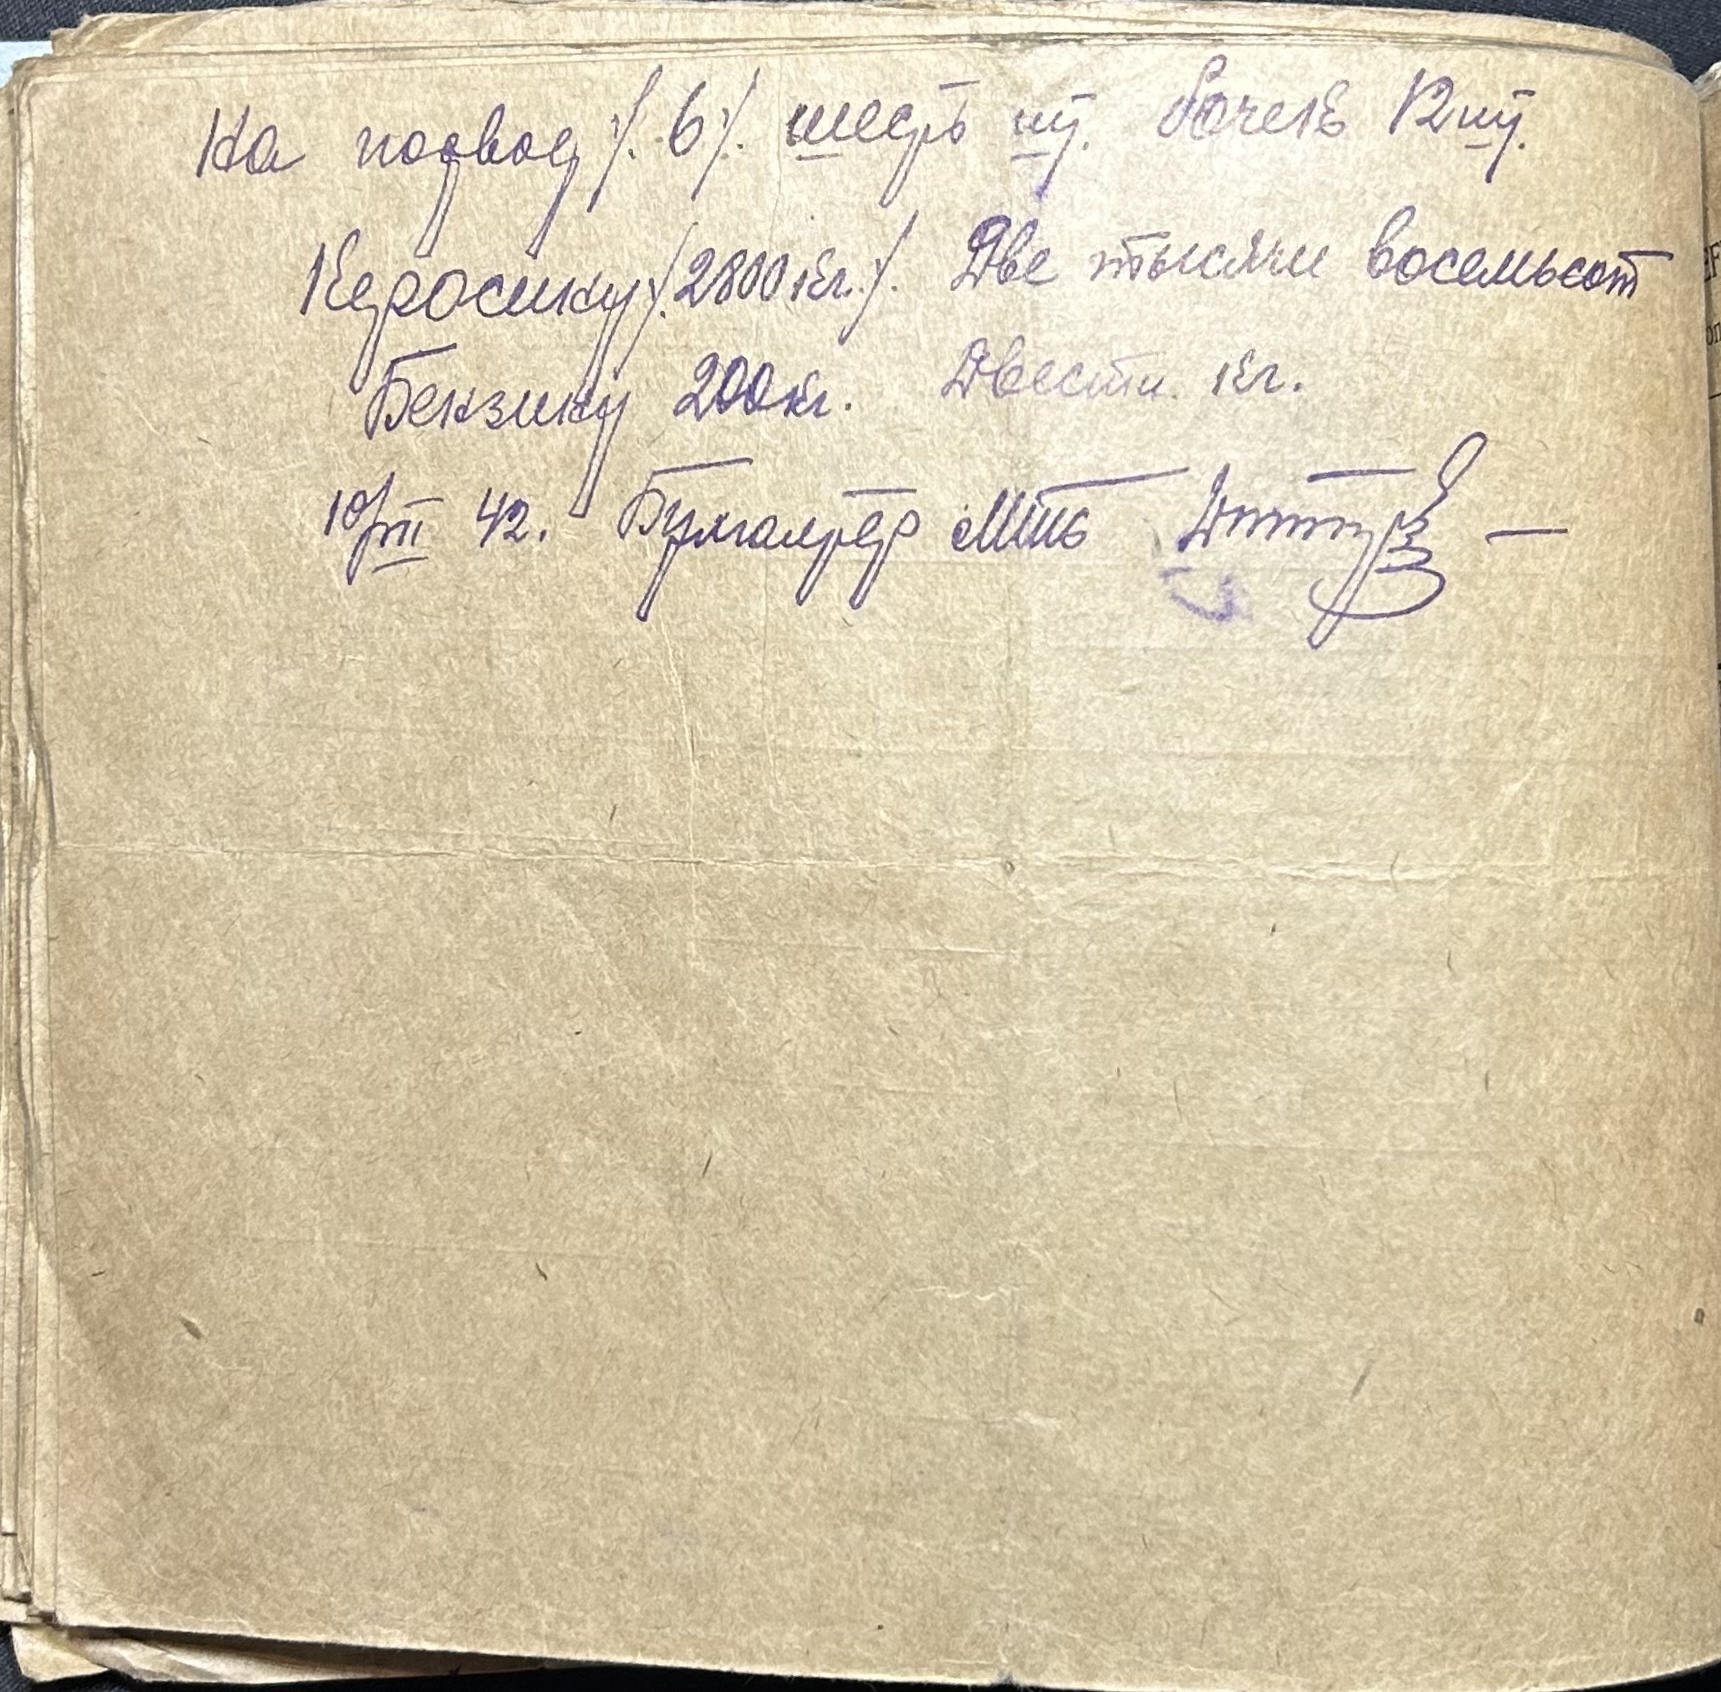 На подвод /. 6 /. шесть шт. бочек 12 шт.
Керосину /. 2800 кг. /. Две тысячи восемьсот
Бензину 200 кг. Двести кг.
10/VII 42. Бухгалтер МТПС